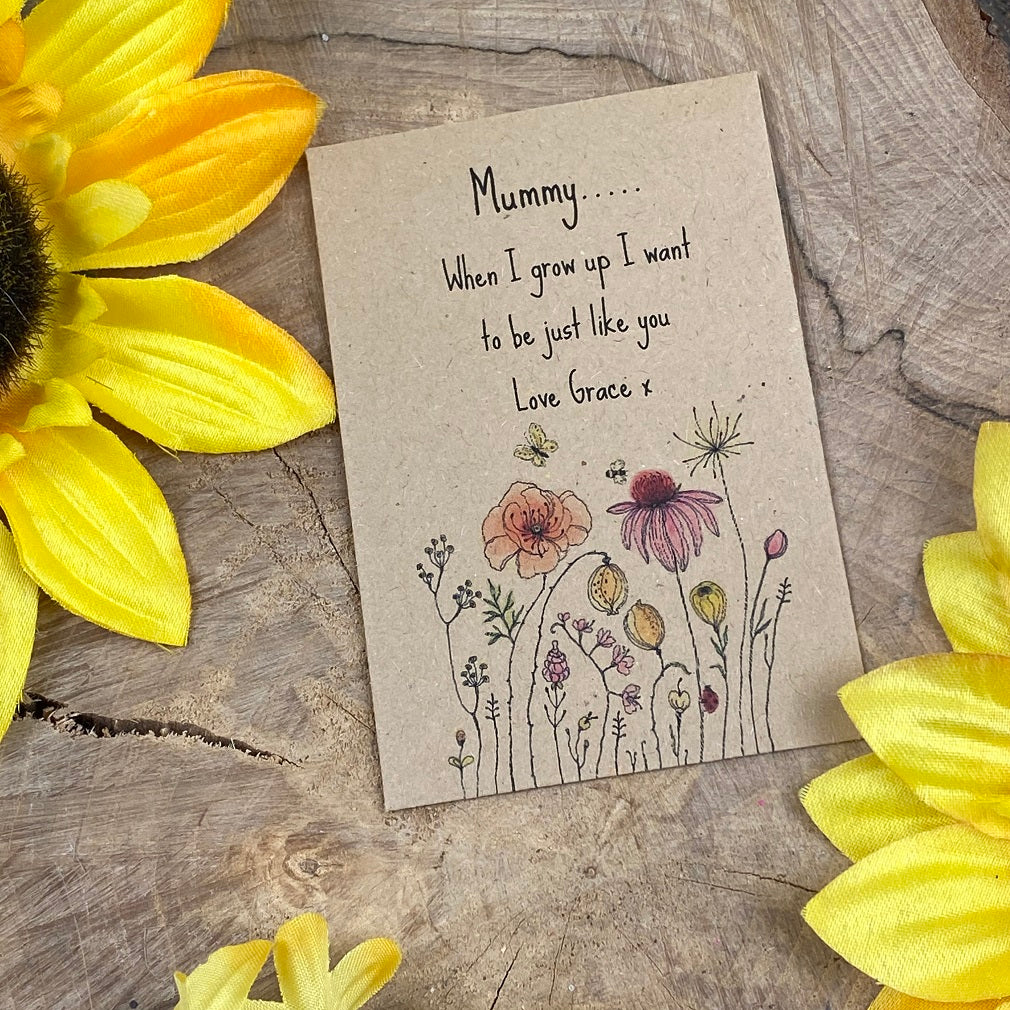 Mummy.....
When I grow up I want
to be just like you
Love Grace x